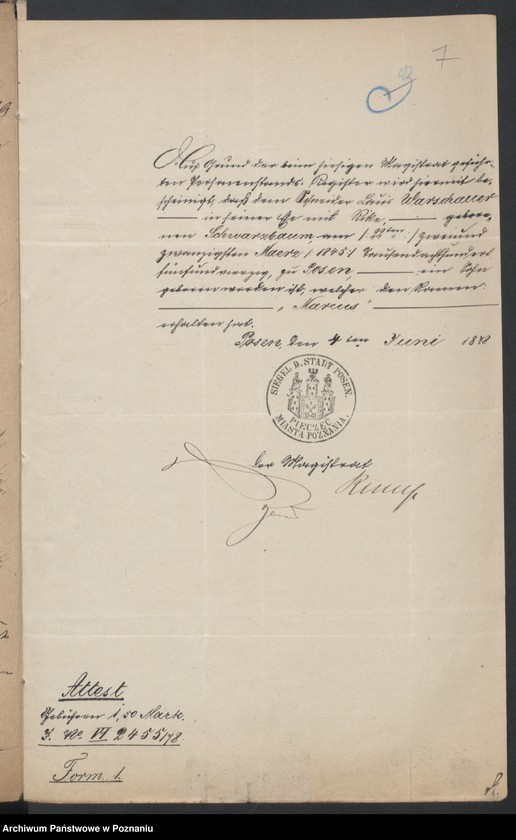 7
Auf Grund der beim hiesigen Magistrat geführ-
ten Personenstands-Register wird hiermit be-
scheinigt, daß dem Schneider Louis Warschauer
in seiner Ehe mit Rike, gebore-
nen Schwarzbaum, am /:22ten:/ zweiund
zwanzigsten Maerz /:1845:/ Tausendachthundert
fünfundvierzig, zu Posen, ein Sohn
geboren worden ist, welcher den Namen
"Marcus"
erhalten hat.
Posen, den 4ten Juni 1878
SIEGEL D. STADT POSEN.
PIECZĘĆ
MIASTA POZNANIA.
Der Magistrat
Attest
Gebühren 1,50 Mark.
J. No. VI 2455/78.
Form. 1.
Archiwum Państwowe w Poznaniu